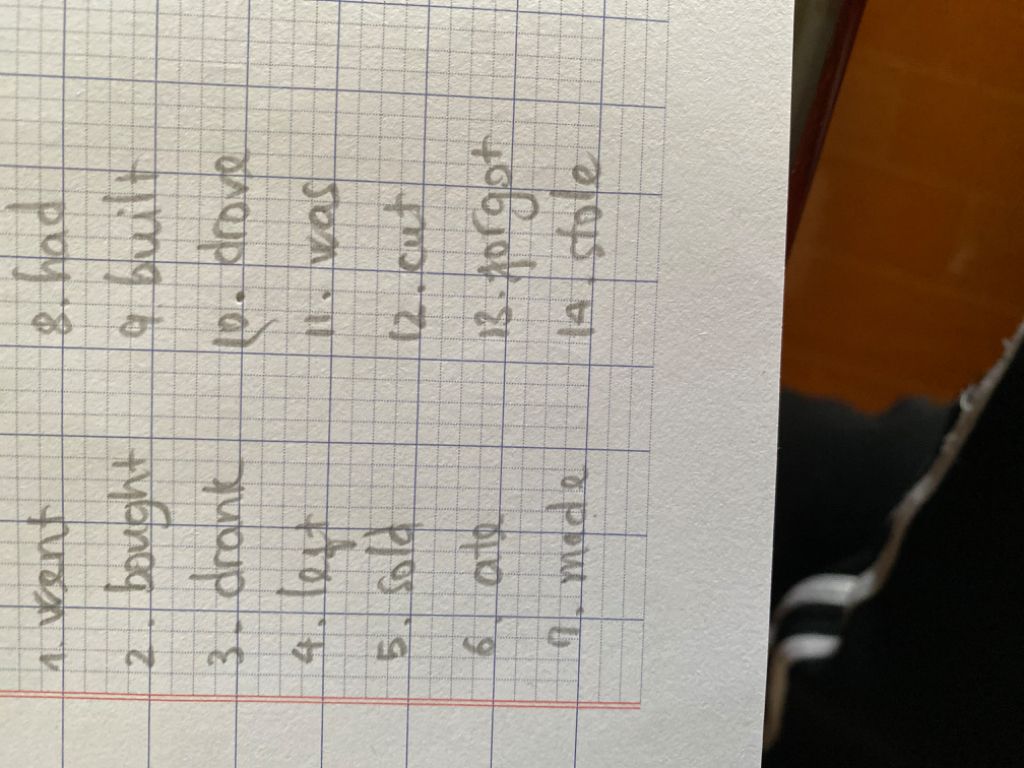 1. went
2. bought
3. drank
4. left
5. sold
6. ate
7. made
8. had
9. built
10. drove
11. was
12. cut
13. forgot
14. stole